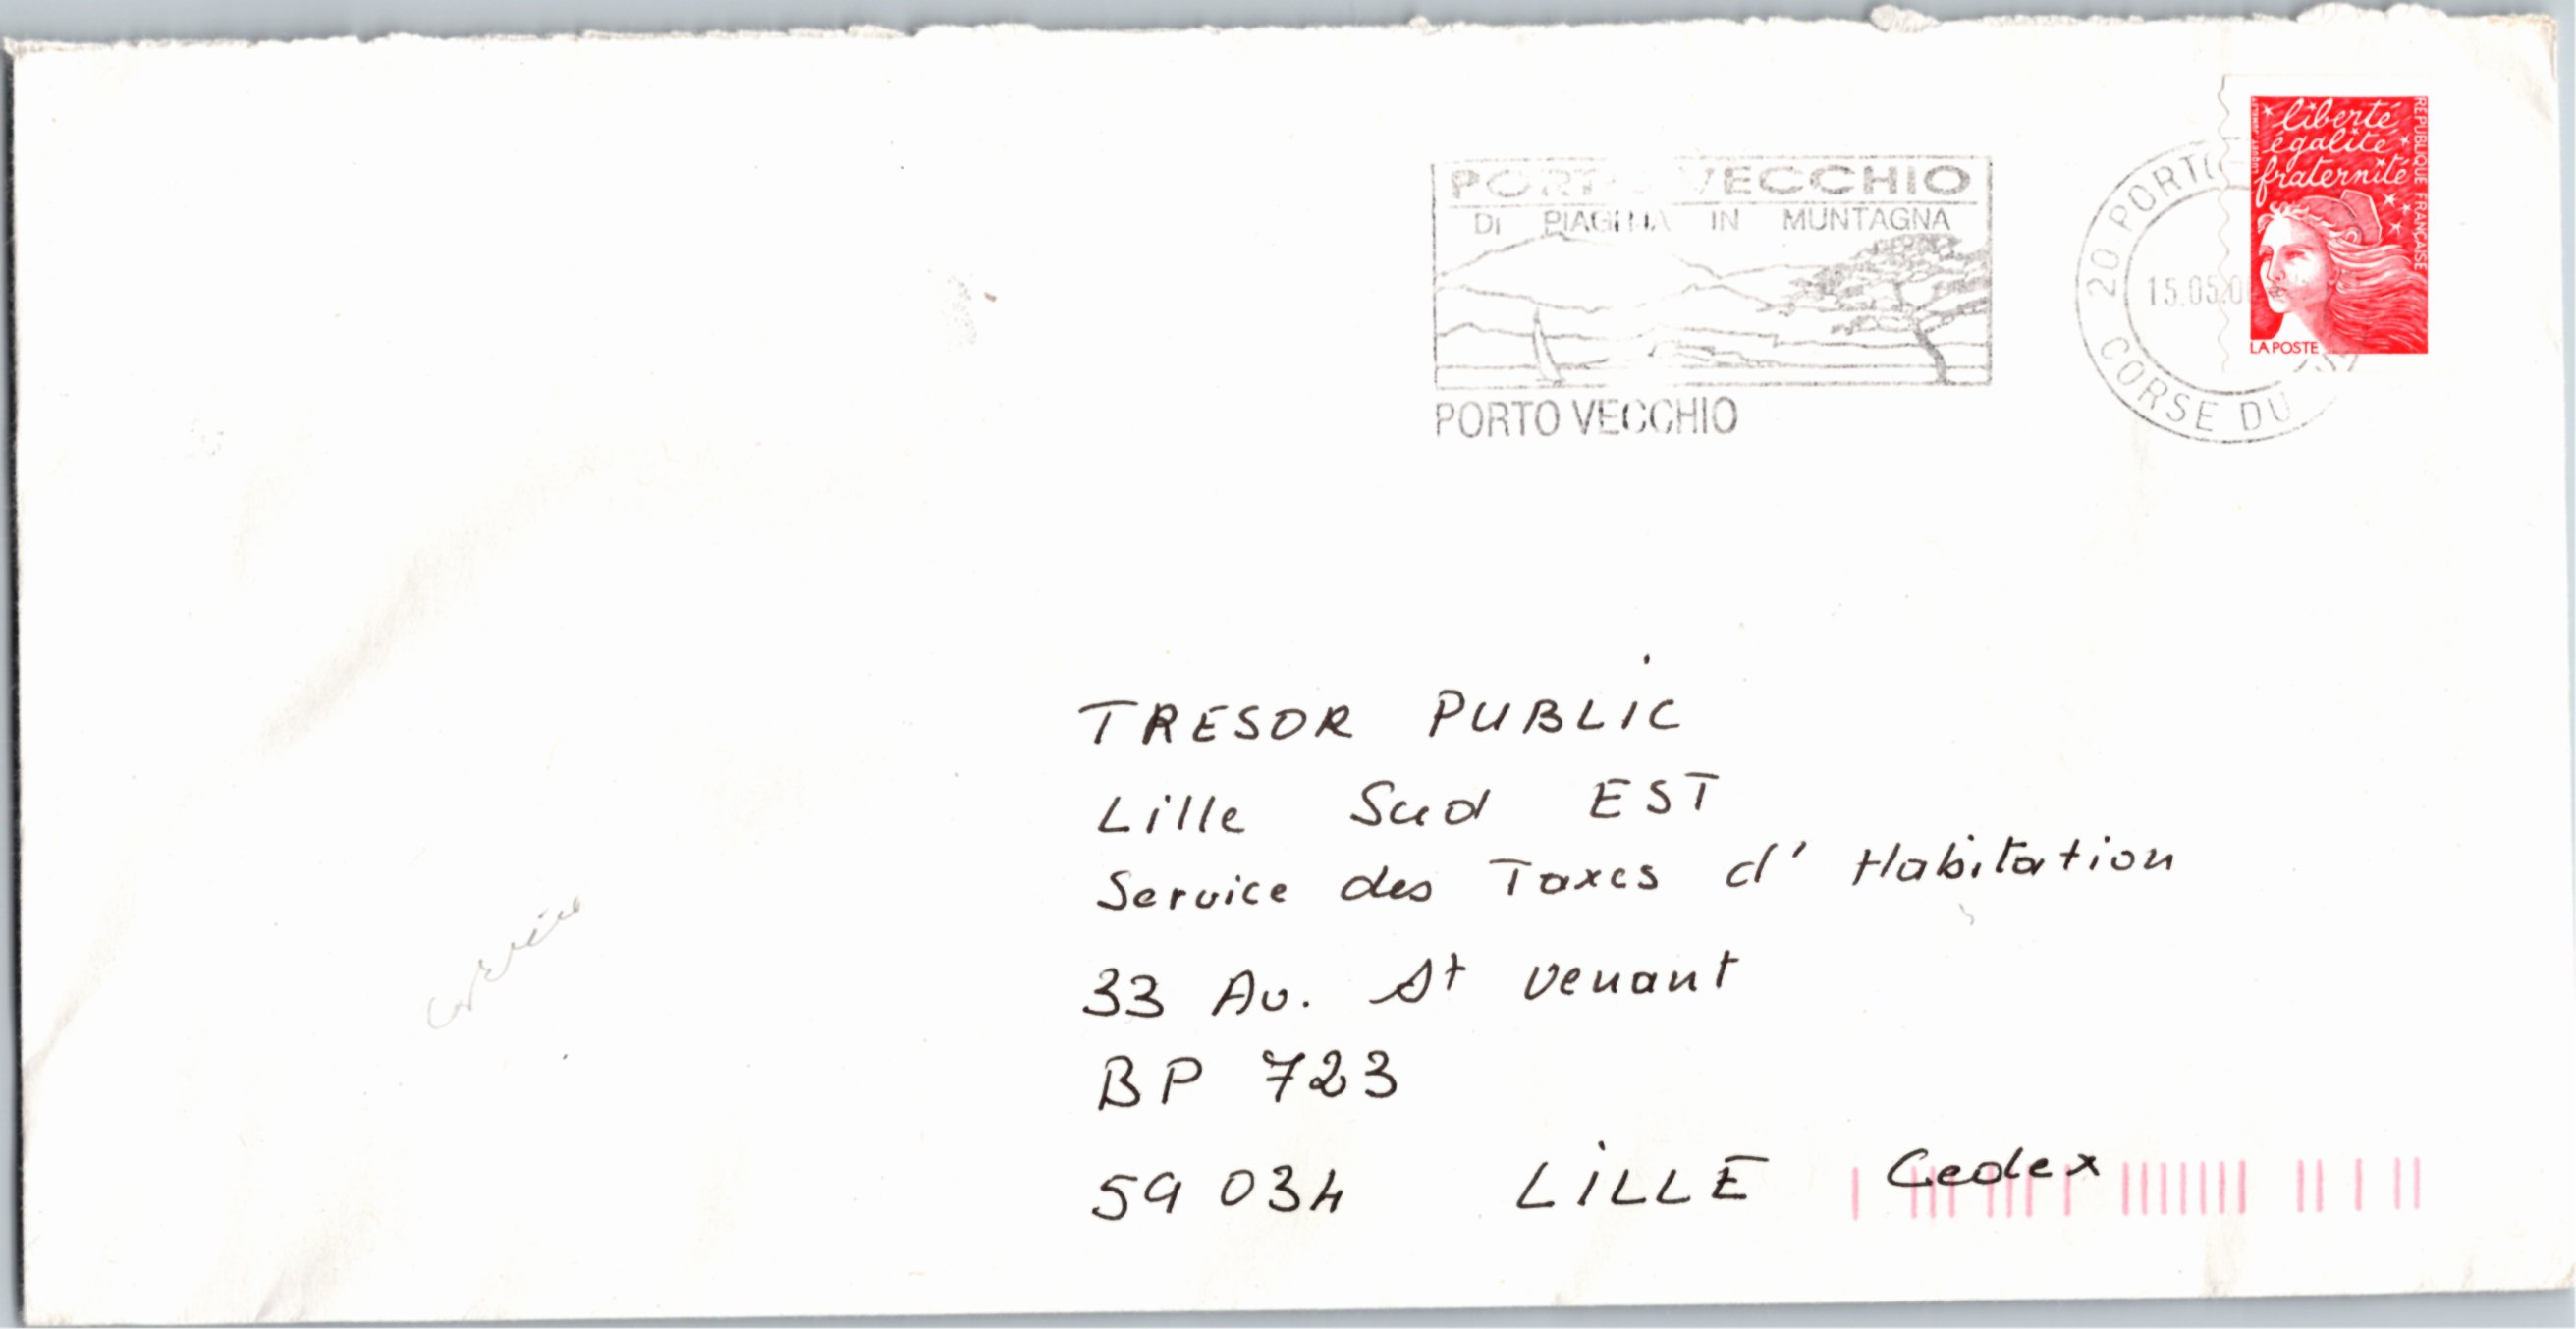 liberté
égalité
fraternité
RÉPUBLIQUE FRANÇAISE
LA POSTE
PORTO VECCHIO
DI PIAGHJA IN MUNTAGNA
PORTO VECCHIO
20 PORTO
15.05.0
CORSE DU
TRESOR PUBLIC
Lille Sud EST
Service des Taxes d' Habitation
33 Av. St Venant
BP 723
59 034 LILLE Cedex